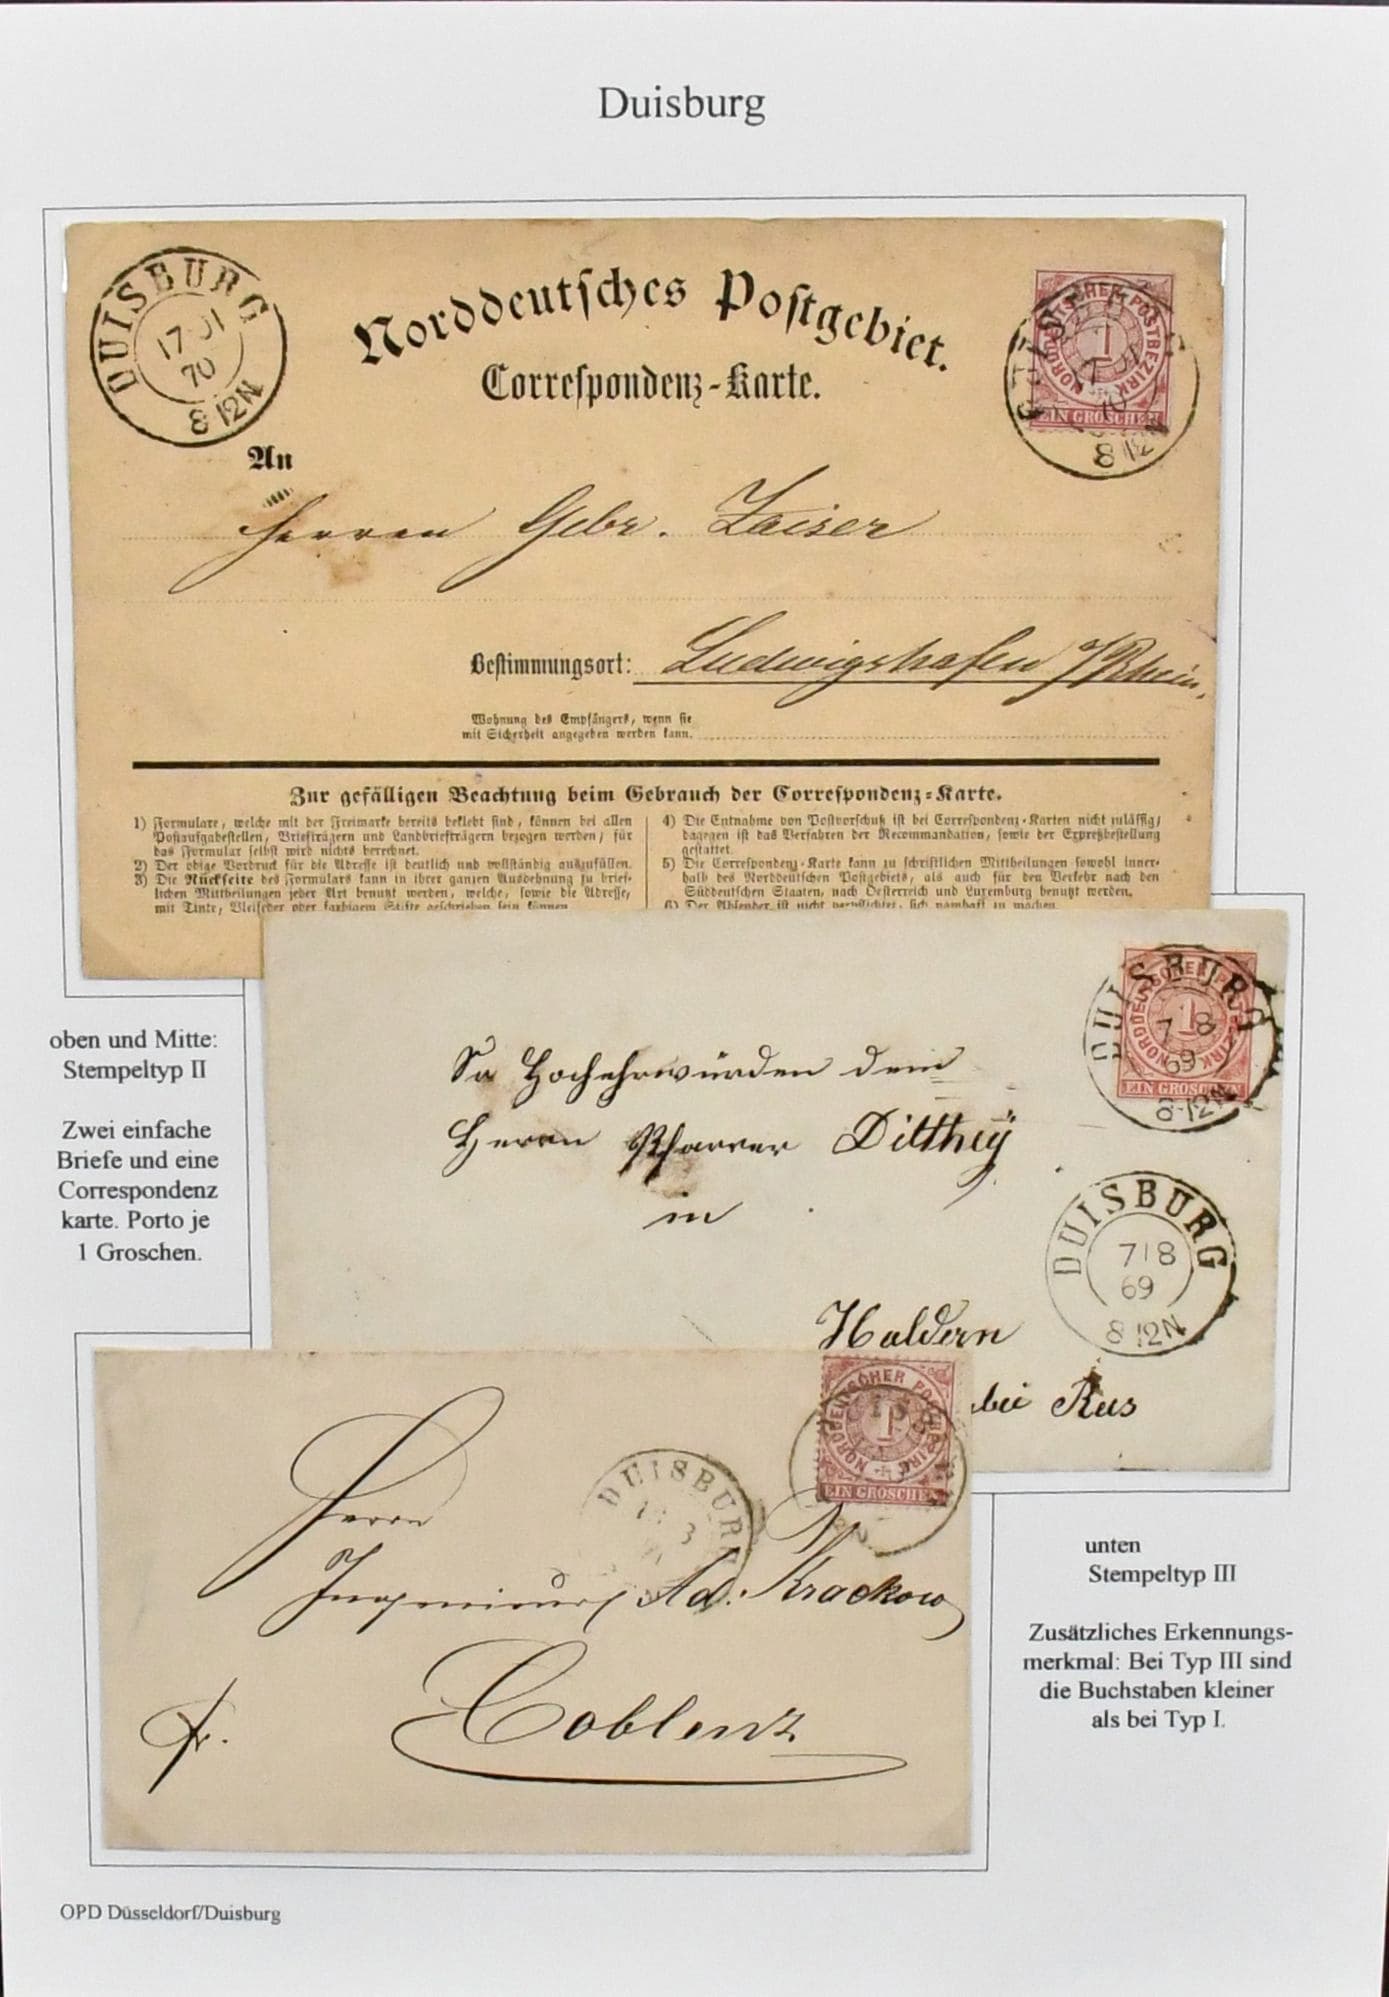 Duisburg
DUISBURG
17 01
70
8 12N
Norddeutsches Postgebiet.
Correspondenz-Karte.
NORDDEUTSCHER POSTBEZIRK
1
EIN GROSCHEN
17 01
8 12N
An
Herren Gebr. Zaiser
Bestimmungsort: Ludwigshafen a/Rhein.
Wohnung des Empfängers, wenn sie
mit Sicherheit angegeben werden kann.
Zur gefälligen Beachtung beim Gebrauch der Correspondenz-Karte.
1) Formulare, welche mit der Freimarke bereits beklebt sind, können bei allen
Postaufgabestellen, Briefträgern und Landbriefträgern bezogen werden; für
das Formular selbst wird nichts berechnet.
2) Der obige Vordruck für die Adresse ist deutlich und vollständig auszufüllen.
3) Die Rückseite des Formulars kann in ihrer ganzen Ausdehnung zu brief-
lichen Mittheilungen jeder Art benutzt werden, welche, sowie die Adresse,
mit Tinte, Bleifeder oder farbigem Stifte geschrieben sein können.
4) Die Entnahme von Postvorschuß ist bei Correspondenz-Karten nicht zulässig;
dagegen ist das Verfahren der Recommandation, sowie der Expreßbestellung
gestattet.
5) Die Correspondenz-Karte kann zu schriftlichen Mittheilungen sowohl inner-
halb des Norddeutschen Postgebiets, als auch für den Verkehr nach den
Süddeutschen Staaten, nach Oesterreich und Luxemburg benutzt werden.
6) Der Absender ist nicht verpflichtet, sich namhaft zu machen.
oben und Mitte:
Stempeltyp II
Zwei einfache
Briefe und eine
Correspondenz
karte. Porto je
1 Groschen.
NORDDEUTSCHER POSTBEZIRK
1
EIN GROSCHEN
DUISBURG
7 8
69
8-12N
Sr Hochehrwürden dem
Herrn Pfarrer Dilthey
in
Haldern
bei Rees
DUISBURG
7 8
69
8 12N
NORDDEUTSCHER POSTBEZIRK
1
EIN GROSCHEN
DUISBURG
Herrn
Ingenieur Ad. Krackow
Coblenz
fr.
unten
Stempeltyp III
Zusätzliches Erkennungs-
merkmal: Bei Typ III sind
die Buchstaben kleiner
als bei Typ I.
OPD Düsseldorf/Duisburg